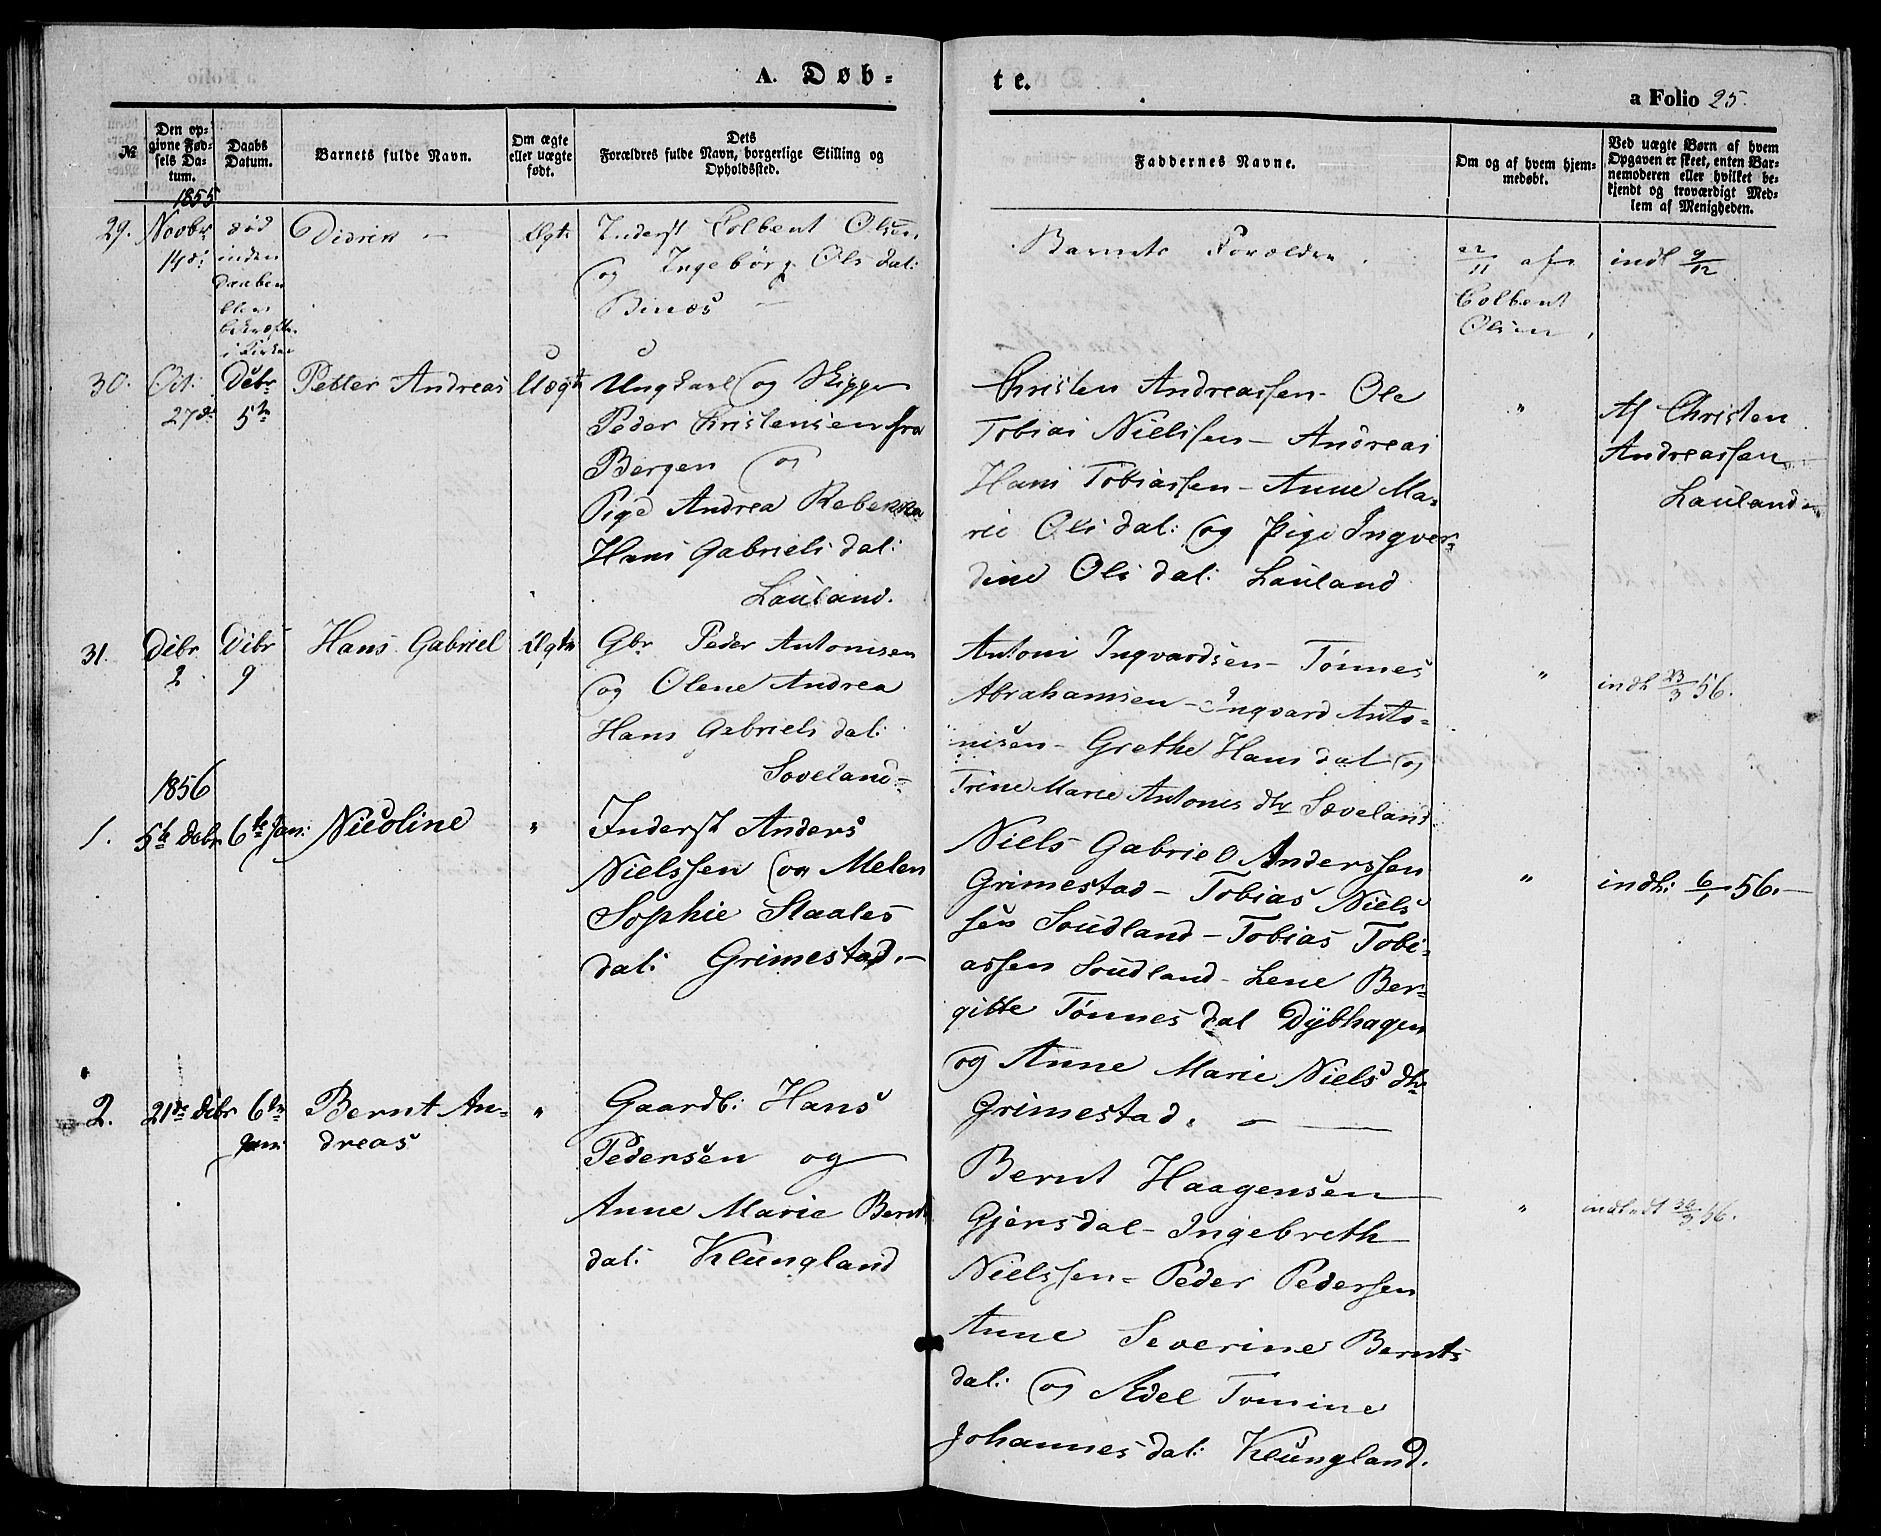 A. Døb-
te.
a Folio 25.
№
Den op-
givne Fød-
sels Da-
tum.
Daabs
Datum.
Barnets fulde Navn.
Om ægte
eller uægte
født.
Dets
Forældres fulde Navn, borgerlige Stilling og
Opholdssted.
Faddernes Navne.
Om og af hvem hjem-
medøbt.
Ved uægte Børn af hvem
Opgaven er skeet, enten Bar-
nemoderen eller hvilket be-
kjendt og troværdigt Med-
lem af Menigheden.
1855
29.
Novbr
14de
død
inden
Daaben
blev
bekræftet
i Kirken
Didrik —
Ægte
Inderst Colbent Olsen
og Ingebørg Ols dal:
Barnets Forældre.
22/11 af
Colbent
Olsen
indl 9/12
30.
Oct:
27de
Debr
5te
Petter Andreas
Uægte
Ungkarl og Skipper
Peder Christensen fra
Bergen og
Pige Andrea Rebekka
Hans Gabriels dal:
Lauland.
Christen Andreassen - Ole
Tobias Nielssen - Andreas
Hans Tobiassen - Anne Ma-
rie Ols dal: og Pige Ingver-
dine Ols dal: Lauland
"
Af Christen
Andreassen
Lauland
31.
Debr
2
Debr
9
Hans Gabriel
Ægte
Gbr Peder Antonisen
og Olene Andrea
Hans Gabriels dal:
Soveland
Antoni Ingvardsen - Tønnes
Abrahamsen - Ingvard Anto-
nisen - Grethe Hans dal og
Trine Marie Antonis dtr Soveland
"
indl 23/3 56.
1856
1.
5te debr
6te Jan:
Nicoline
"
Inderst Anders
Nielssen og Melen
Sophie Staales
dal: Grimestad. -
Niels Gabriel Anderssen
Grimestad - Tobias Niels
sen Soudland - Tobias Tobi-
assen Soudland - Lene Ber-
gitte Tønnes dal Dybhagen
og Anne Marie Niels dtr
Grimestad. —
"
indl: 6/1 56. -
2.
21de debr
6te
Jan:
Bernt An-
dreas
"
Gaardb: Hans
Pedersen og
Anne Marie Bernts
dal: Klungland
Bernt Haagensen
Gjersdal - Ingebreth
Nielssen - Peder Pedersen
Anne Severine Bernts
dal: og Adel Tomine
Johannes dal: Klungland.
"
56.